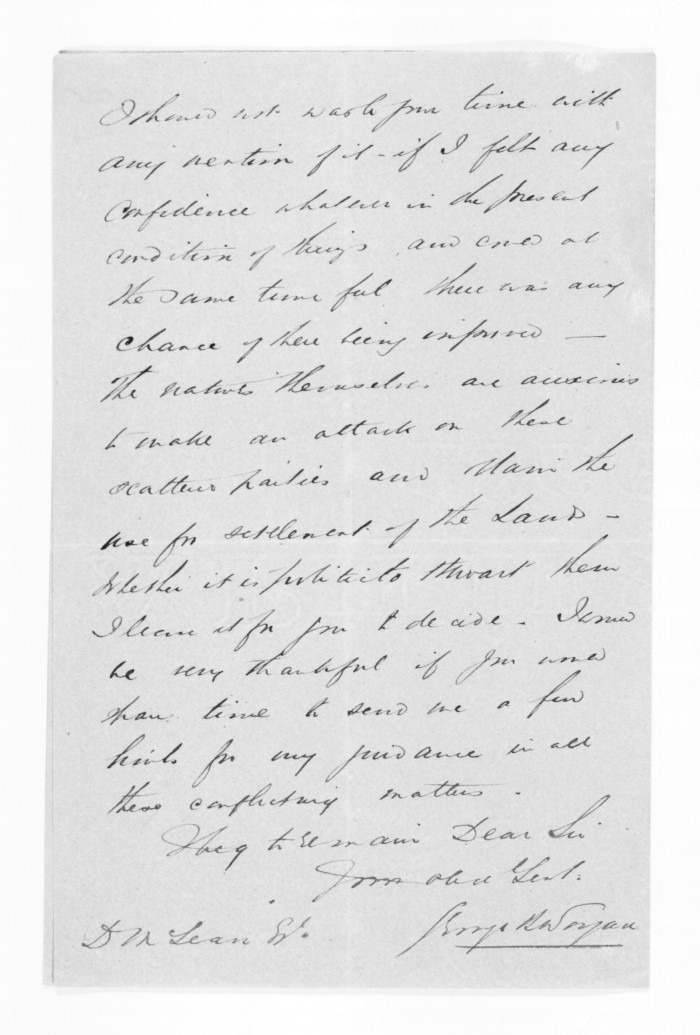 I should not waste your time with
any mention of it - if I felt any
confidence whatever in the present
condition of things, and could at
the same time feel there was any
chance of there being improved —
The natives themselves are anxious
to make an attack on these
scattered parties and the
use for settlement of the Land -
Whether it is politic to thwart them
I leave it for you to decide - I would
be very thankful if you would
time to send me a few
hints for my guidance in all
these conflicting matters -
I beg to remain Dear Sir
Your obed Sert.
D McLean Esq. George